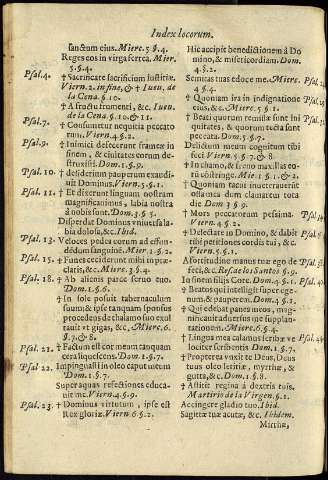 Index locorum.
sanctum eius. Mierc. 3 §. 4.
Reges eos in virga ferrea. Mier.
3. §. 4.
Psal. 4. † Sacrificate sacrificium iustitiæ.
Viern. 2. in fine, & † Iueu. de
la Cena. §. 10.
† A fructu frumenti, &c. Iuen.
de la Cena. §. 10. & 11.
Psal. 7. † Consumetur nequitia peccato
rum. Viern. 1. §. 2.
Psal. 9. † Inimici defecerunt frameæ in
finem, & ciuitates eorum de-
struxisti. Dom. 1. §. 9.
Psal. 10. † desiderium pauperum exaudi-
uit Dominus. Viern. 5. §. 1.
Psal. 11. † Et dixerunt linguam nostram
magnificauimus, labia nostra
à nobis sunt. Dom. 3. §. 5.
Disperdat Dominus vniuersa la-
bia dolosa, &c. Ibid.
Psal. 13. Veloces pedes eorum ad effun-
dendum sanguinē. Mier. 1. §. 2.
Psal. 15. † Funes ceciderunt mihi in præ-
claris, &c. Mierc. 3. §. 4.
Psal. 18. † Ab alienis parce seruo tuo.
Dom. 1. §. 7.
† In sole posuit tabernaculum
suum & ipse tanquam sponsus
procedens de thalamo suo exul
tauit vt gigas, &c. Mierc. 6.
§. 7. & 8.
Psal. 21. † Factum est cor meum tanquam
cera liquescens. Dom. 1. §. 7.
Psal. 22. Impinguasti in oleo caput meum
Dom. 1. §. 7.
Super aquas refectiones educa-
uit me. Viern. 4. §. 9.
Psal. 23. † Dominus virtutum, ipse est
Rex gloriæ. Viern. 6. §. 2.
Hic accipiet benedictionem à Do
mino, & misericordiam. Dom.
4. §. 2.
Semitas tuas edoce me. Mierc.
4. §. 4.
† Quoniam ira in indignatione
eius, & c. Mierc. 4. §. 3.
† Beati quorum remissæ sunt ini
quitates, & quorum tecta sunt
peccata. Dom. 5. §. 7.
Delictum meum cognitum tibi
feci Viern. 5. §. 7. & 8.
† In chamo, & freno maxillas eo-
rū cōstringe. Mie. 1. §. 1. & 2.
† Quoniam tacui inueterauerūt
ossa mea dum clamarem tota
die Dom. 3. §. 9.
† Mors peccatorum pessima.
Viern. 4. §. 2.
† Delectare in Domino, & dabit
tibi petitiones cordis tui, & c.
Viern. 5. §. 1.
A fortitudine manus tuæ ego de
feci, &c. Res. de los Santos §. 9.
In sitem filijs Core. Dom. 4. §. 1.
† Beatus qui intelligit super ege-
num, & pauperem. Dom. 4. §. 1.
† Qui edebat panes meos, mag-
nificauit aduersū me supplan-
tationem. Mierc. 6. §. 4.
† Lingua mea calamus scribæ ve
lociter scribentis Dom. 1. §. 7.
† Propterea vnxit te Deus, Deus
tuus oleo letitiæ, myrrha, &
gutta, &c. Dom. 1. §. 8.
† Astitit regina à dextris tuis,
Martirio de la Virgen. §. 1.
Accingere gladio tuo. Ibid.
Sagittæ tuæ acutæ, &c. Ibidem.
Mirrha,